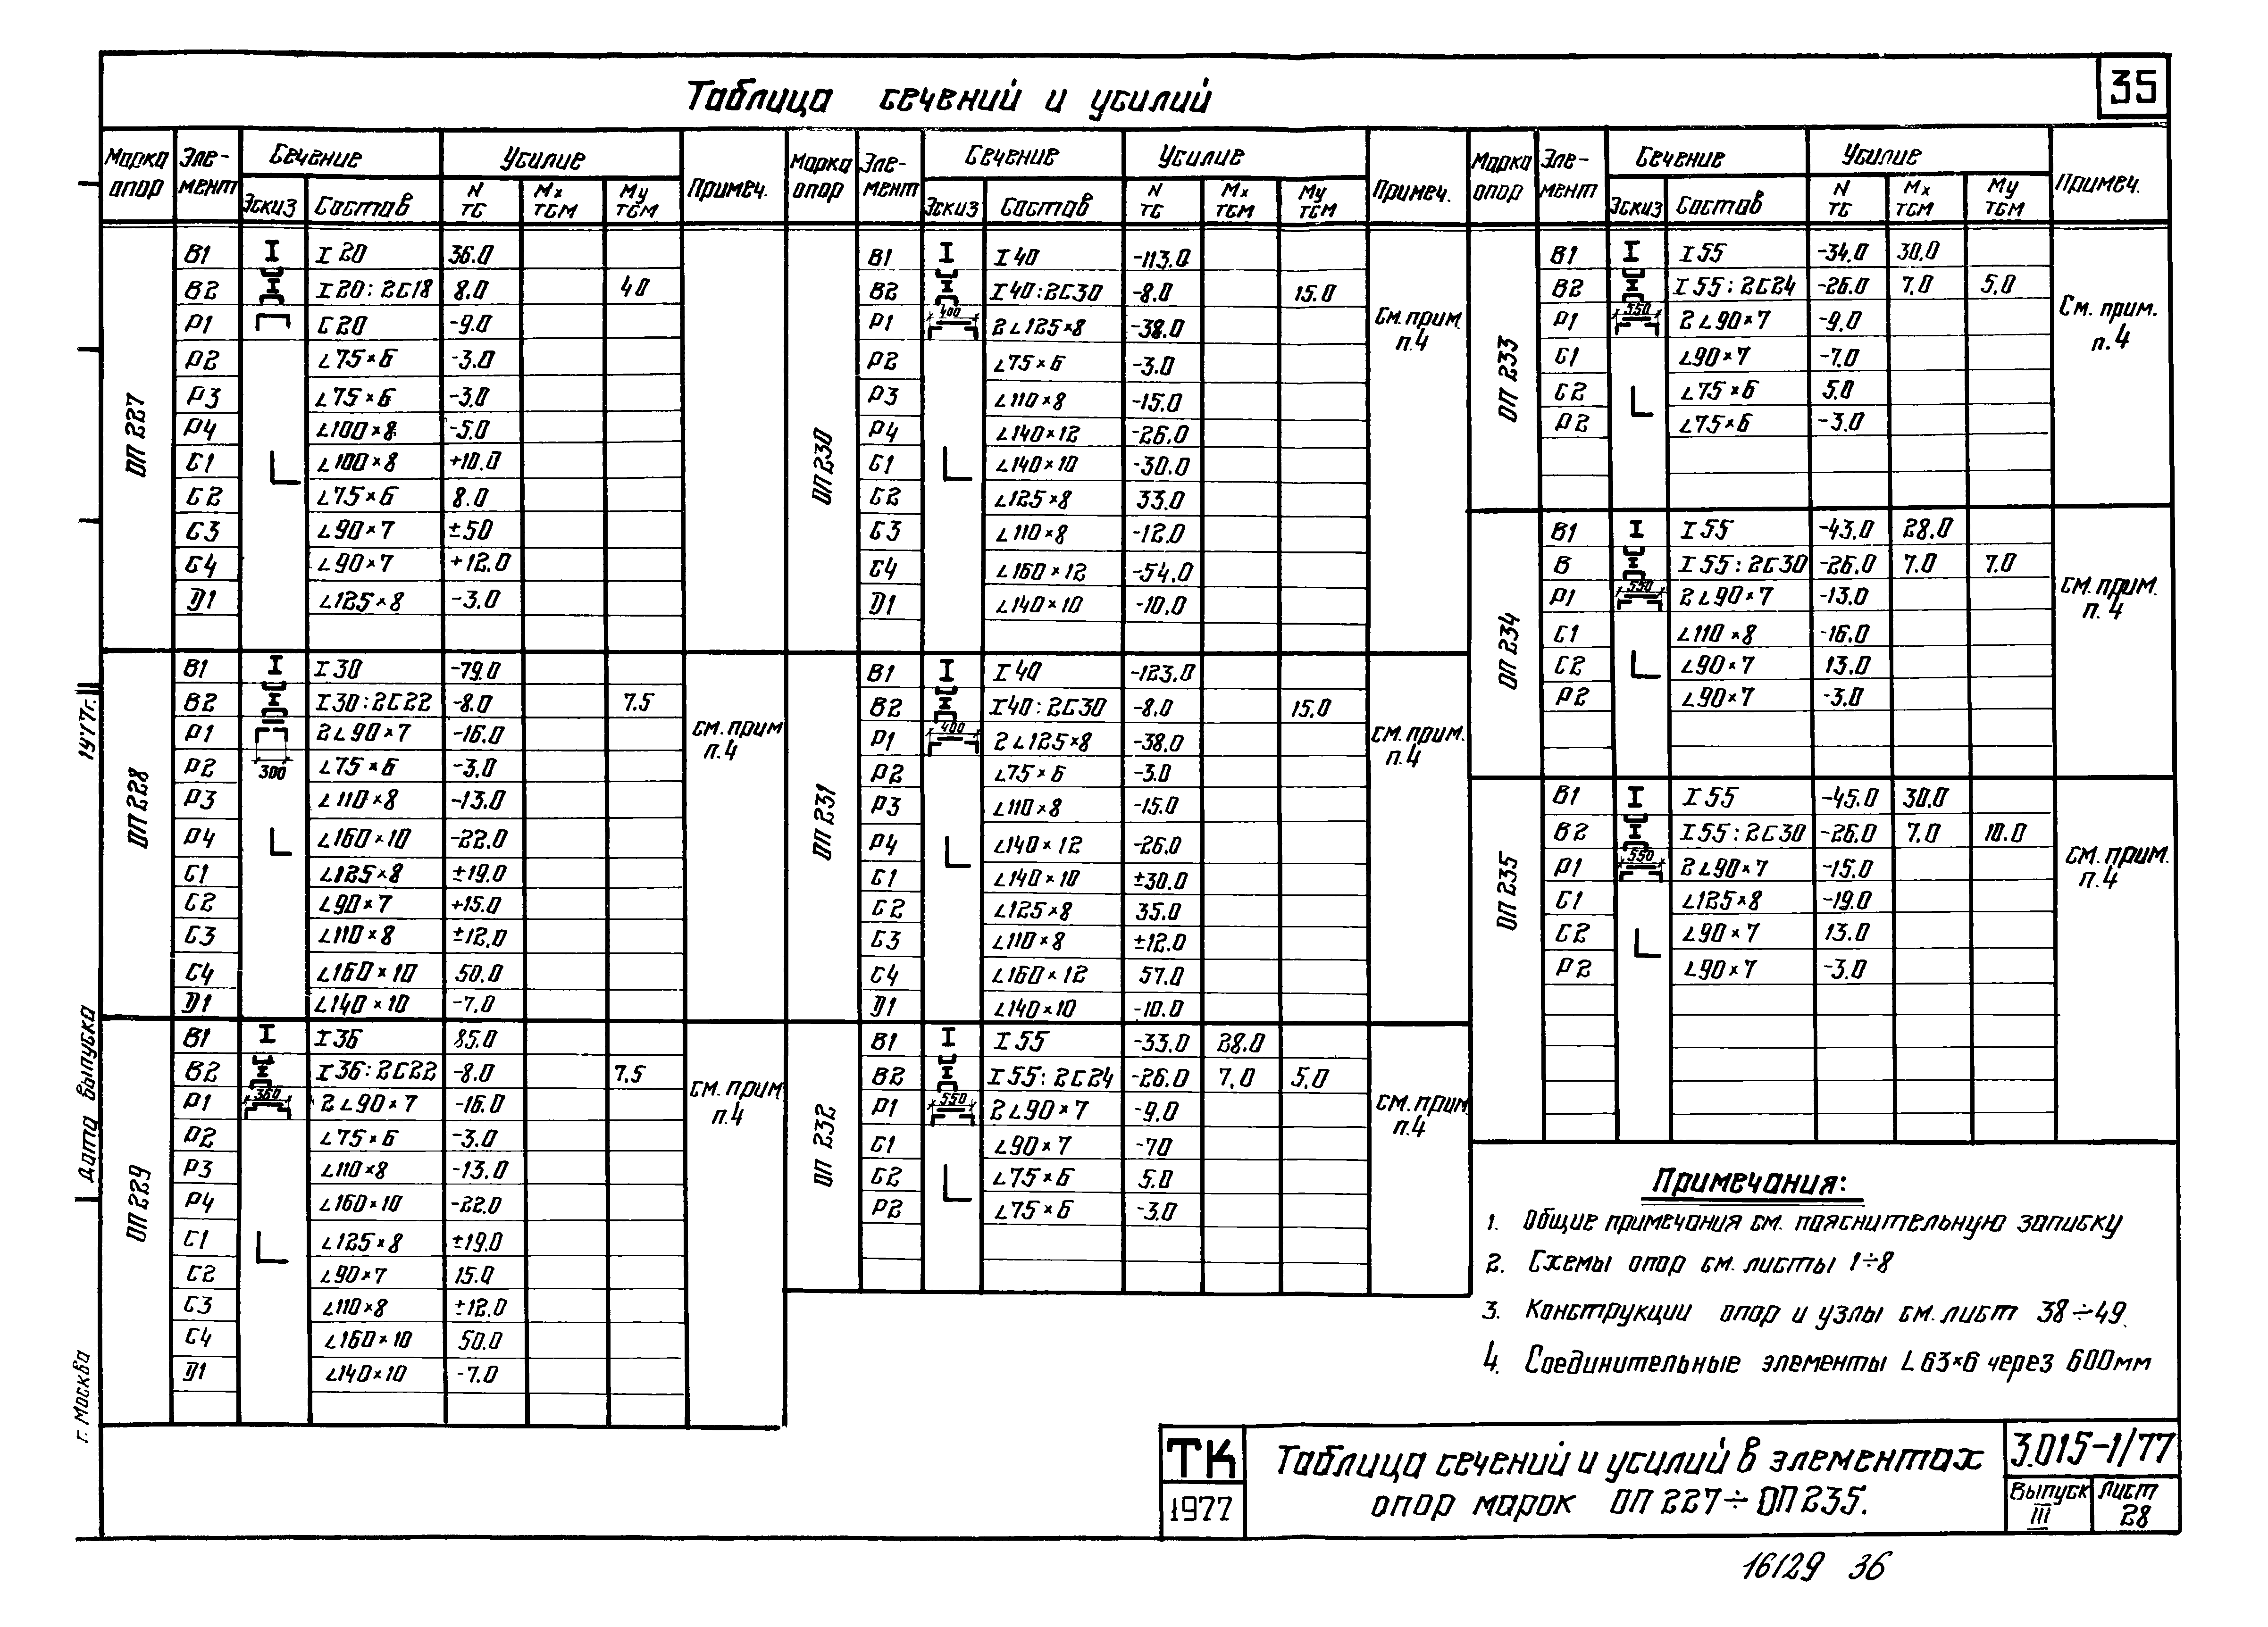 35
Таблица сечений и усилий
Марка опор
Эле-мент
Сечение
Усилие
Примеч.
Эскиз
Состав
N тс
Mx тсм
My тсм
Марка опор
Эле-мент
Сечение
Усилие
Примеч.
Эскиз
Состав
N тс
Mx тсм
My тсм
Марка опор
Эле-мент
Сечение
Усилие
Примеч.
Эскиз
Состав
N тс
Mx тсм
My тсм
ОП 227
В1 I I 20 36.0
В2 I 20: 2С18 8.0 40
Р1 С 20 -9.0
Р2 L75×6 -3.0
Р3 L75×6 -3.0
Р4 L100×8 -5.0
С1 L100×8 +10.0
С2 L75×6 8.0
С3 L90×7 ±50
С4 L90×7 +12.0
Д1 L125×8 -3.0
ОП 228
В1 I I 30 -79.0
В2 I 30: 2С22 -8.0 7.5
Р1 2L90×7 -16.0
см. прим п.4
Р2 300 L75×6 -3.0
Р3 L110×8 -13.0
Р4 L160×10 -22.0
С1 L125×8 ±19.0
С2 L90×7 +15.0
С3 L110×8 ±12.0
С4 L160×10 50.0
Д1 L140×10 -7.0
ОП 229
В1 I I 36 85.0
В2 I 36: 2С22 -8.0 7.5
Р1 360 2L90×7 -16.0
см. прим п.4
Р2 L75×6 -3.0
Р3 L110×8 -13.0
Р4 L160×10 -22.0
С1 L125×8 ±19.0
С2 L90×7 15.0
С3 L110×8 ±12.0
С4 L160×10 50.0
Д1 L140×10 -7.0
ОП 230
В1 I I 40 -113.0
В2 I 40: 2С30 -8.0 15.0
Р1 400 2L125×8 -38.0
См. прим. п.4
Р2 L75×6 -3.0
Р3 L110×8 -15.0
Р4 L140×12 -26.0
С1 L140×10 -30.0
С2 L125×8 33.0
С3 L110×8 -12.0
С4 L160×12 -54.0
Д1 L140×10 -10.0
ОП 231
В1 I I 40 -123.0
В2 I 40: 2С30 -8.0 15.0
Р1 400 2L125×8 -38.0
см. прим. п.4
Р2 L75×6 -3.0
Р3 L110×8 -15.0
Р4 L140×12 -26.0
С1 L140×10 ±30.0
С2 L125×8 35.0
С3 L110×8 ±12.0
С4 L160×12 57.0
Д1 L140×10 -10.0
ОП 232
В1 I I 55 -33.0 28.0
В2 I 55: 2С24 -26.0 7.0 5.0
Р1 550 2L90×7 -9.0
см. прим п.4
С1 L90×7 -70
С2 L75×6 5.0
Р2 L75×6 -3.0
ОП 233
В1 I I 55 -34.0 30.0
В2 I 55: 2С24 -26.0 7.0 5.0
Р1 550 2L90×7 -9.0
См. прим. п.4
С1 L90×7 -7.0
С2 L75×6 5.0
Р2 L75×6 -3.0
ОП 234
В1 I I 55 -43.0 28.0
В I 55: 2С30 -26.0 7.0 7.0
Р1 550 2L90×7 -13.0
см. прим. п.4
С1 L110×8 -16.0
С2 L90×7 13.0
Р2 L90×7 -3.0
ОП 235
В1 I I 55 -45.0 30.0
В2 I 55: 2С30 -26.0 7.0 10.0
Р1 550 2L90×7 -15.0
см. прим. п.4
С1 L125×8 -19.0
С2 L90×7 13.0
Р2 L90×7 -3.0
Примечания:
1. Общие примечания см. пояснительную записку
2. Схемы опор см. листы 1÷8
3. Конструкции опор и узлы см. лист 38÷49.
4. Соединительные элементы L63×6 через 600мм
ТК
1977
Таблица сечений и усилий в элементах
опор марок ОП 227÷ОП 235.
3.015-1/77
Выпуск III
Лист 28
16129 36
г. Москва
Дата выпуска
1977г.